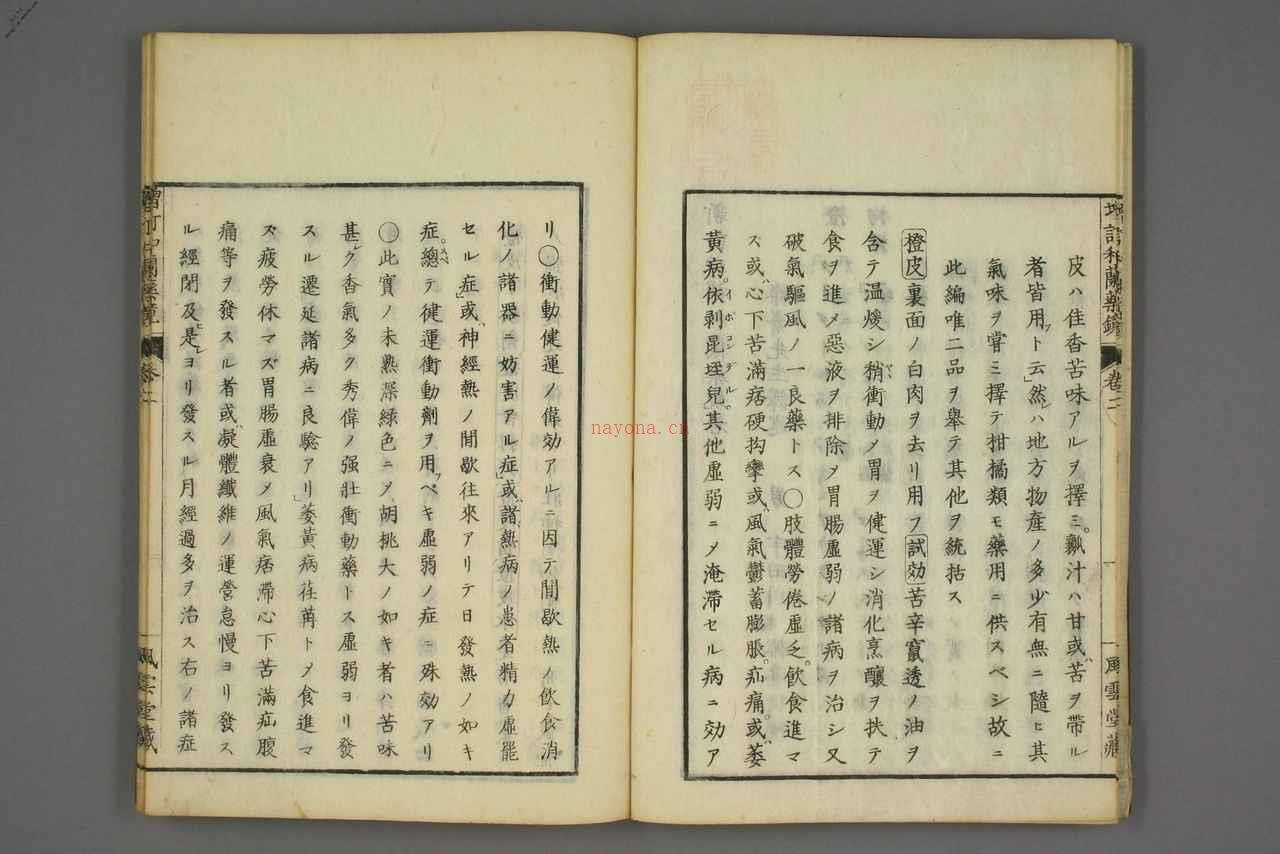 皮ハ佳香苦味アルヲ擇ミ瓤汁ハ甘或ハ苦ヲ帶ル
者皆用フト云然レハ地方物產ノ多少有無ニ隨ヒ其
氣味ヲ嘗ミ擇テ柑橘類モ藥用ニ供スベシ故ニ
此編唯二品ヲ舉テ其他ヲ統括ス
橙皮裏面ノ白肉ヲ去リ用フ試効苦辛竄透ノ油ヲ
含テ溫煖シ稍衝動メ胃ヲ健運シ消化烹釀ヲ扶テ
食ヲ進メ惡液ヲ排除メ胃腸虛弱ノ諸病ヲ治シ又
破氣驅風ノ一良藥トス〇肢體勞倦虛乏飲食進マ
ス或ハ心下苦滿痞硬拘攣或ハ風氣鬱蓄膨脹疝痛或ハ萎
黃病依剥昆垤兒イボコンデル其他虛弱ニメ淹滯セル病ニ効ア
增訂和蘭藥鏡
卷二
風雲堂藏
リ〇衝動健運ノ偉効アルニ因テ間歇熱ノ飲食消
化ノ諸器ニ妨害アル症或ハ諸熱病ノ患者精力虛罷
セル症或ハ神經熱ノ間歇往來アリテ日發熱ノ如キ
症總スベテ健運衝動劑ヲ用フベキ虛弱ノ症ニ殊効アリ
〇此實ノ未熟深綠色ニメ胡桃大ノ如キ者ハ苦味
甚シク香氣多ク秀偉ノ强壯衝動藥トス虛弱ヨリ發
スル遷延諸病ニ良驗アリ萎黃病荏苒トメ食進マ
ズ疲勞休マズ胃腸虛衰メ風氣痞滯心下苦滿疝腹
痛等ヲ發スル者或ハ凝體纖維ノ運營怠慢ヨリ發ス
ル經閉及ヒ是レヨリ發スル月經過多ヲ治ス右ノ諸症
卷二
風雲堂藏
nayona.cn